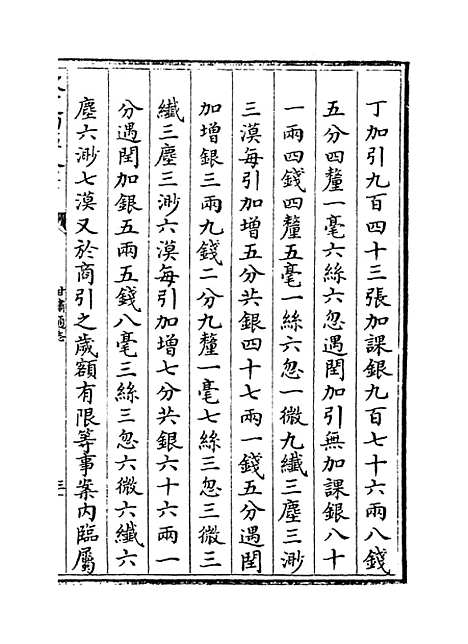 丁加引九百四十三張加課銀九百七十六兩八錢
五分四釐一毫六絲六忽遇閏加引無加課銀八十
一兩四錢四釐五毫一絲六忽一微九纖三塵三渺
三漠每引加增五分共銀四十七兩一錢五分遇閏
加增銀三兩九錢二分九釐一毫七絲三忽三微三
纖三塵三渺六漠每引加增七分共銀六十六兩一
分遇閏加銀五兩五錢八毫三絲三忽六微六纖六
塵六渺七漠又於商引之歲額有限等事案内臨屬
甘肅通志